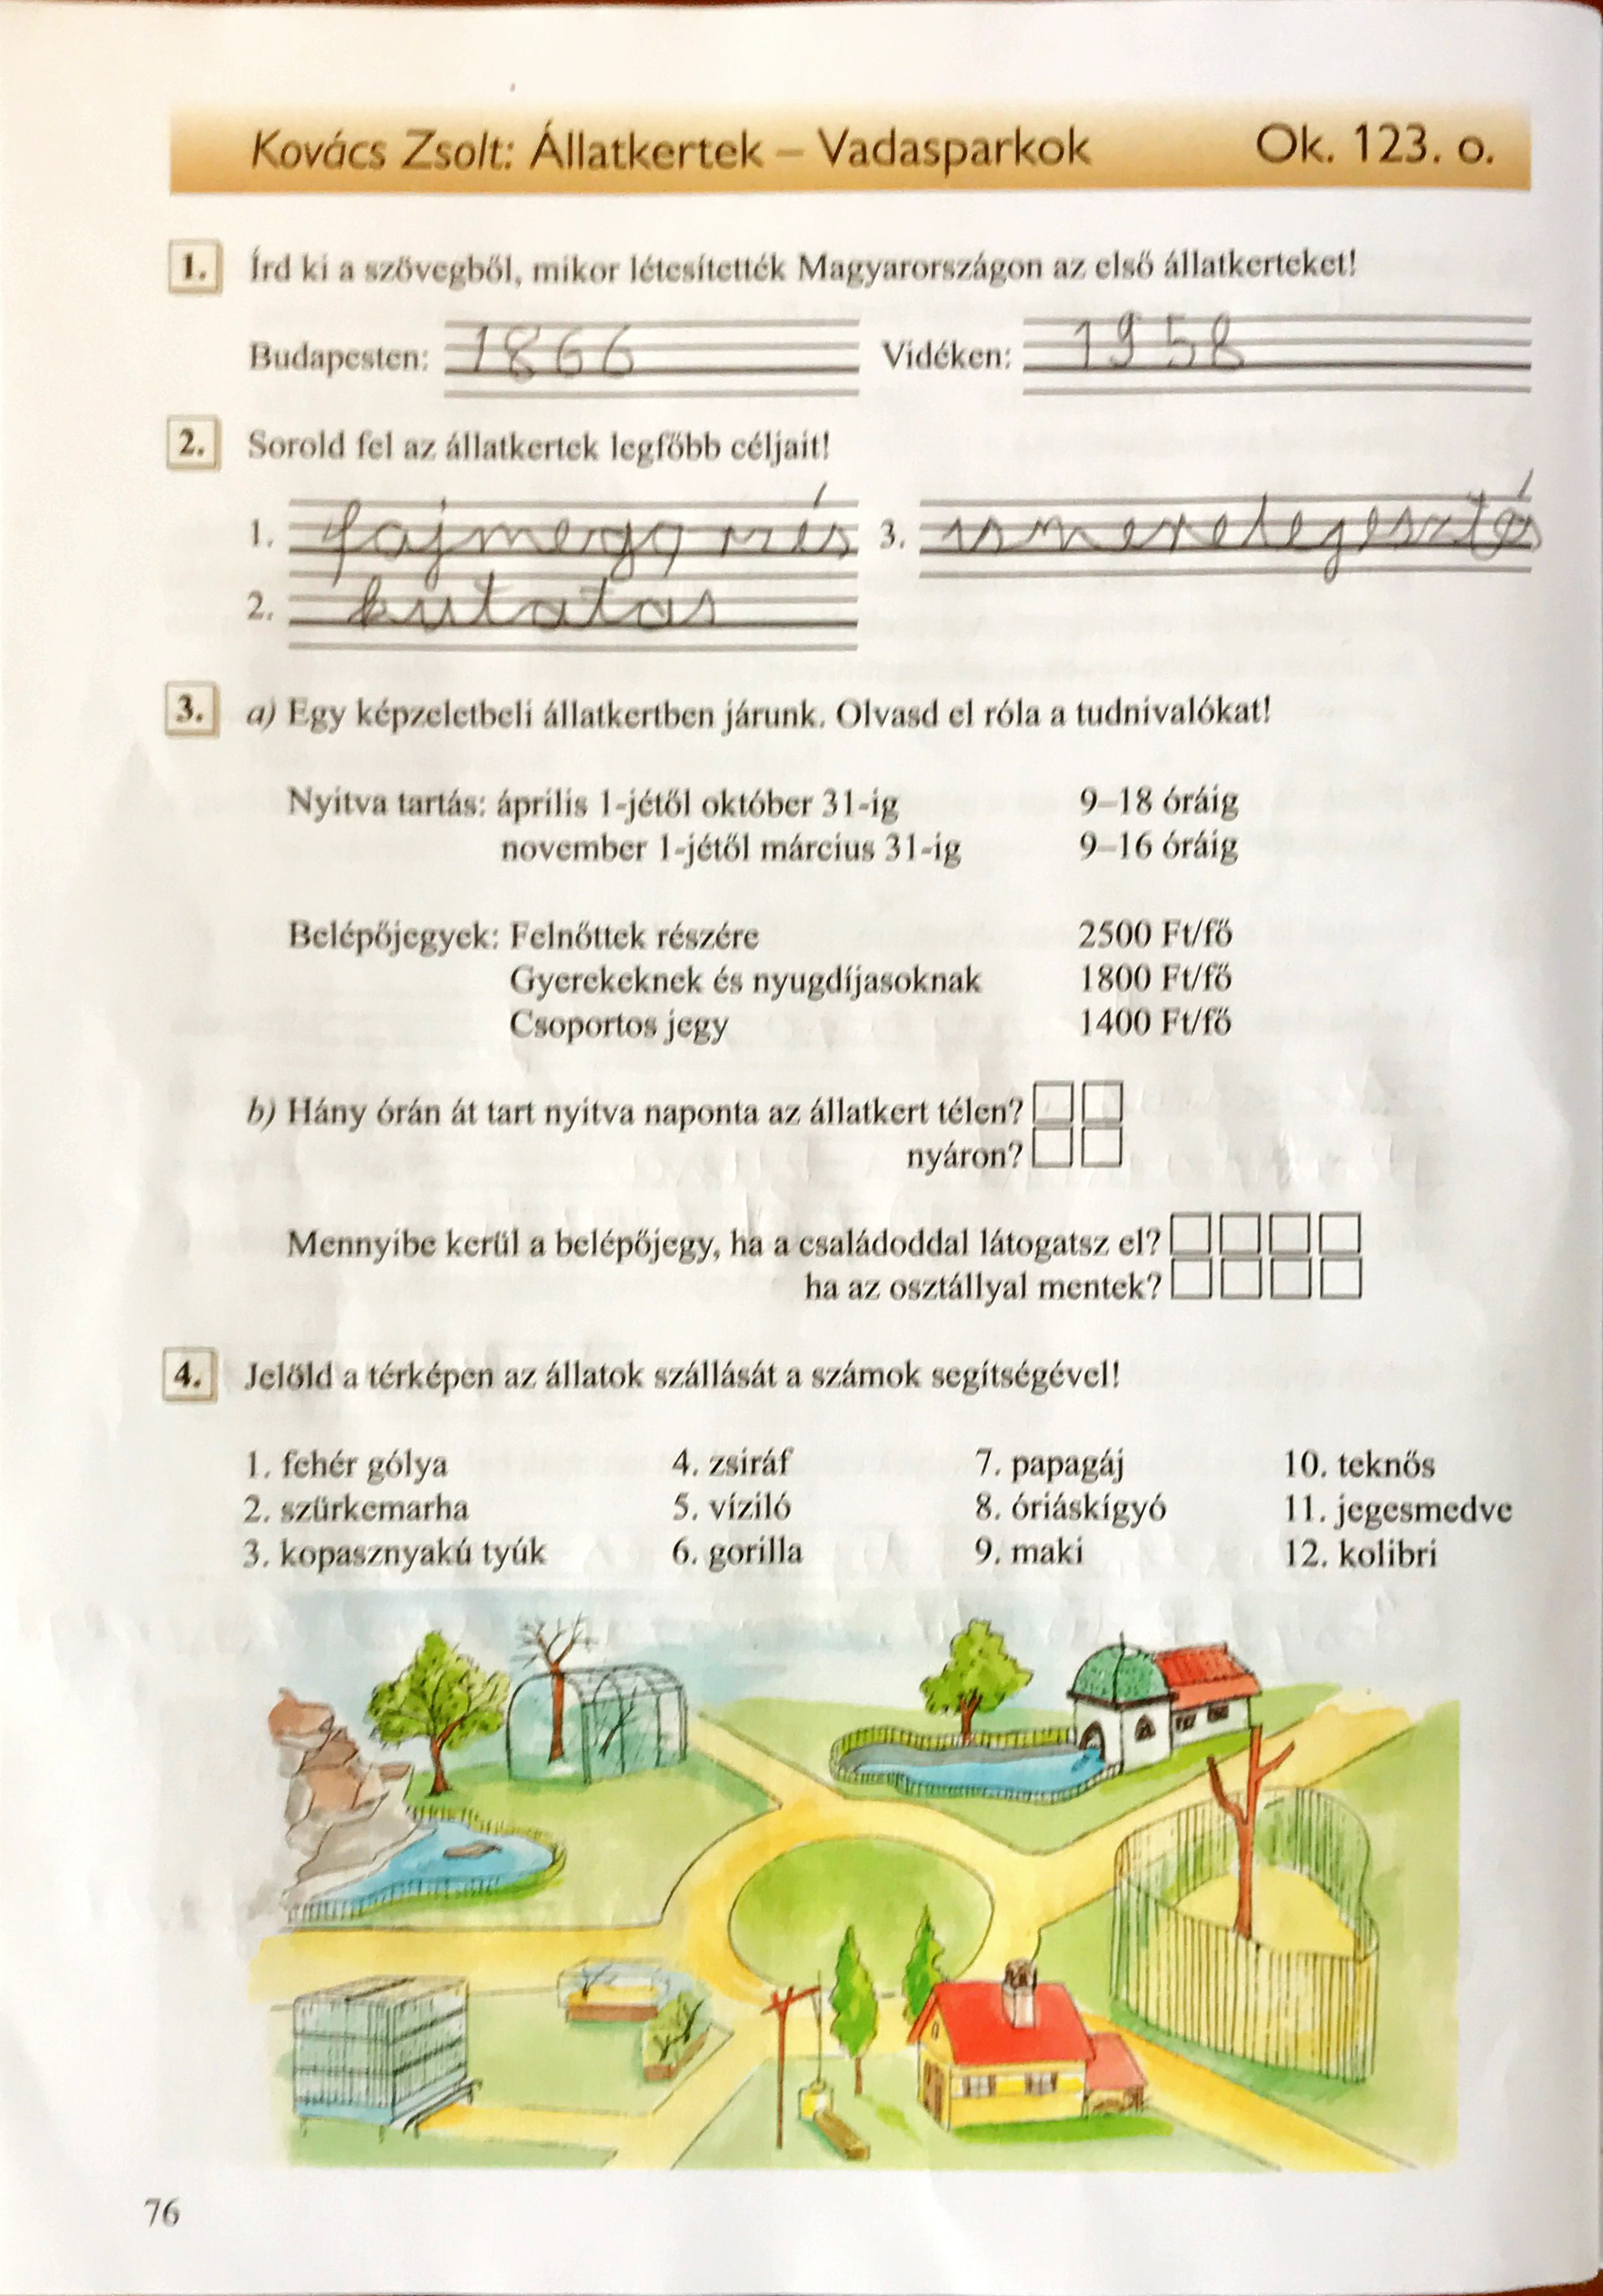 Kovács Zsolt: Állatkertek – Vadasparkok Ok. 123. o.
1. Írd ki a szövegből, mikor létesítették Magyarországon az első állatkerteket!
Budapesten: 1866 Vidéken: 1958
2. Sorold fel az állatkertek legfőbb céljait!
1. fajmegőrzés 3. ismeretegesztés
2. kutatas
3. a) Egy képzeletbeli állatkertben járunk. Olvasd el róla a tudnivalókat!
Nyitva tartás: április 1-jétől október 31-ig 9–18 óráig
november 1-jétől március 31-ig 9–16 óráig
Belépőjegyek: Felnőttek részére 2500 Ft/fő
Gyerekeknek és nyugdíjasoknak 1800 Ft/fő
Csoportos jegy 1400 Ft/fő
b) Hány órán át tart nyitva naponta az állatkert télen?
nyáron?
Mennyibe kerül a belépőjegy, ha a családoddal látogatsz el?
ha az osztállyal mentek?
4. Jelöld a térképen az állatok szállását a számok segítségével!
1. fehér gólya 4. zsiráf 7. papagáj 10. teknős
2. szürkemarha 5. víziló 8. óriáskígyó 11. jegesmedve
3. kopasznyakú tyúk 6. gorilla 9. maki 12. kolibri
76